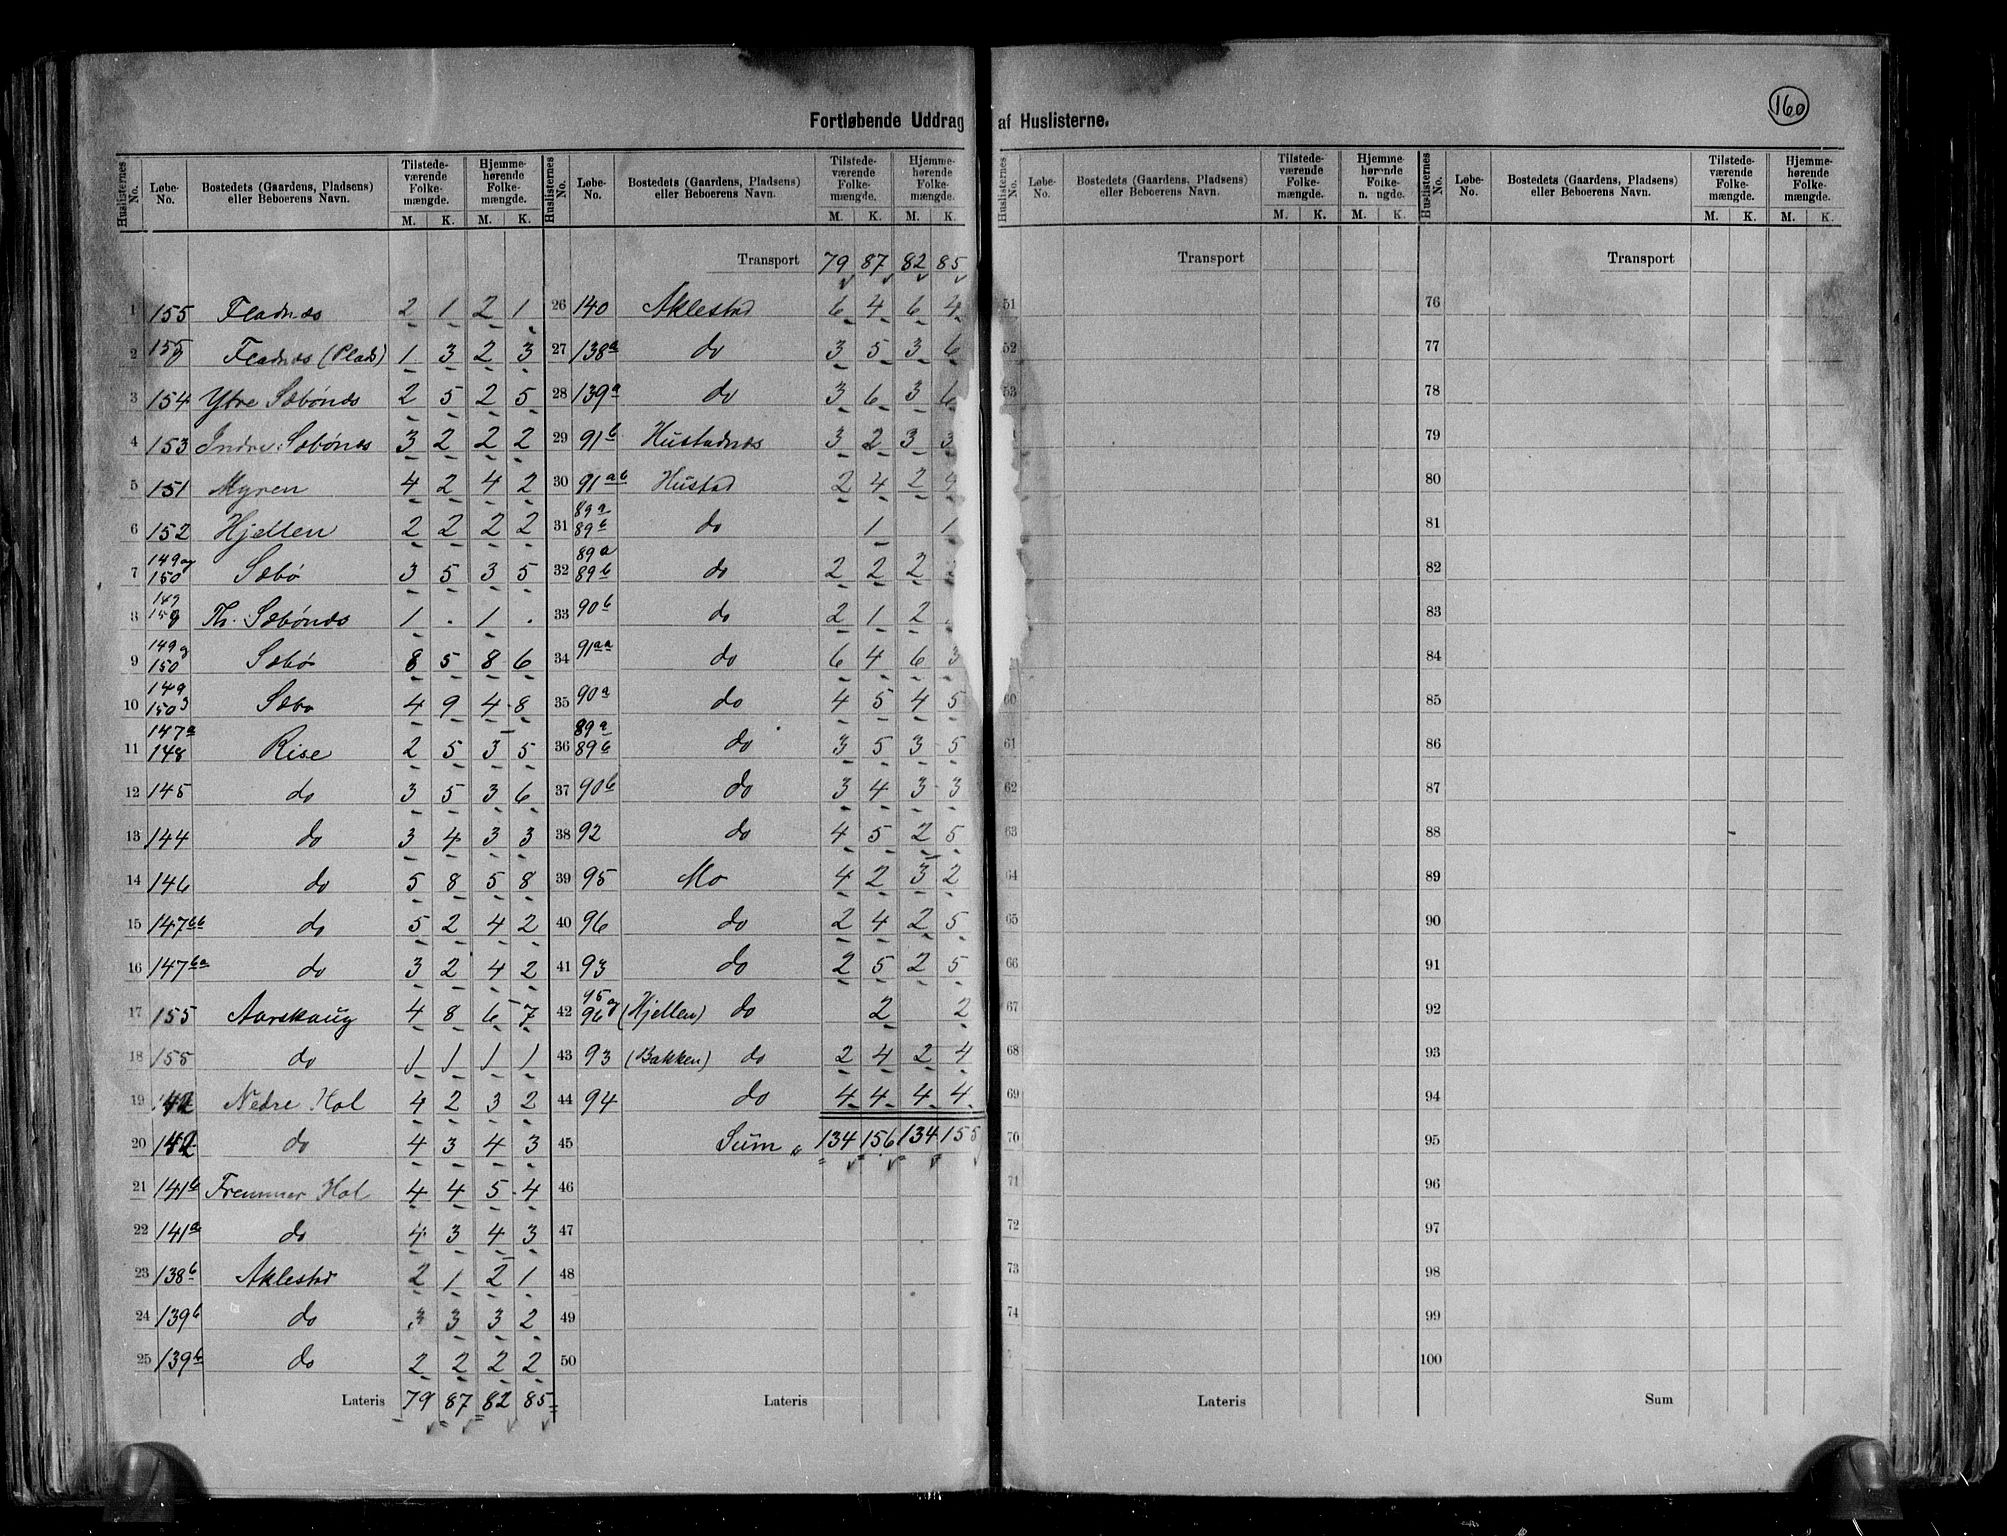 160
Fortløbende Uddrag af Huslisterne.
Huslisternes No. Løbe-No. Bostedets (Gaardens, Pladsens) eller Beboerens Navn. Tilstede-værende Folke-mængde. M. K. Hjemme-hørende Folke-mængde. M. K.
1 155 Fladnæs 2 1 2 1
2 155 Fladnæs (Plads) 1 3 2 3
3 154 Ytre Sæbønæs 2 5 2 5
4 153 Indre Sæbønæs 3 2 2 2
5 151 Myren 4 2 4 2
6 152 Hjellen 2 2 2 2
7 149 og 150 Sæbø 3 5 3 5
8 149 150 Th. Sæbønæs 1 . 1 .
9 149 og 150 Sæbø 8 5 8 6
10 149 150 Sæbø 4 9 4 8
11 147a 148 Rise 2 5 3 5
12 145 do 3 5 3 6
13 144 do 3 4 3 3
14 146 do 5 8 5 8
15 147bb do 5 2 4 2
16 147ba do 3 2 4 2
17 155 Aarskaug 4 8 6 7
18 155 do 1 1 1 1
19 142 Nedre Hol 4 2 3 2
20 142 do 4 3 4 3
21 141b Fremmer Hol 4 4 5 4
22 141a do 4 3 4 3
23 138b Aklestad 2 1 2 1
24 139b do 3 3 3 2
25 139b do 2 2 2 2
Lateris 79 87 82 85
Huslisternes No. Løbe-No. Bostedets (Gaardens, Pladsens) eller Beboerens Navn. Tilstede-værende Folke-mængde. M. K. Hjemme-hørende Folke-mængde. M. K.
Transport 79 87 82 85
26 140 Aklestad 6 4 6 4
27 138a do 3 5 3 6
28 139a do 3 6 3 6
29 91b Hustadnæs 3 2 3 3
30 91ab Hustad 2 4 2 4
31 89a 89b do 1 1
32 89a 89b do 2 2 2
33 90b do 2 1 2
34 91aa do 6 4 6 3
35 90a do 4 5 4 5
36 89a 89b do 3 5 3 5
37 90b do 3 4 3 3
38 92 do 4 5 2 5
39 95 Mo 4 2 3 2
40 96 do 2 4 2 5
41 93 do 2 5 2 5
42 95 og 96 (Hjellen) do 2 2
43 93 (Bakken) do 2 4 2 4
44 94 do 4 4 4 4
45 Sum 134 156 134 155
46
47
48
49
50
Lateris
Huslisternes No. Løbe-No. Bostedets (Gaardens, Pladsens) eller Beboerens Navn. Tilstede-værende Folke-mængde. M. K. Hjemme-hørende Folke-mængde. M. K.
Transport
51
52
53
60
61
62
63
64
65
66
67
68
69
70
71
72
73
74
Lateris
Huslisternes No. Løbe-No. Bostedets (Gaardens, Pladsens) eller Beboerens Navn. Tilstede-værende Folke-mængde. M. K. Hjemme-hørende Folke-mængde. M. K.
Transport
76
77
78
79
80
81
82
83
84
85
86
87
88
89
90
91
92
93
94
95
96
97
98
99
100
Sum